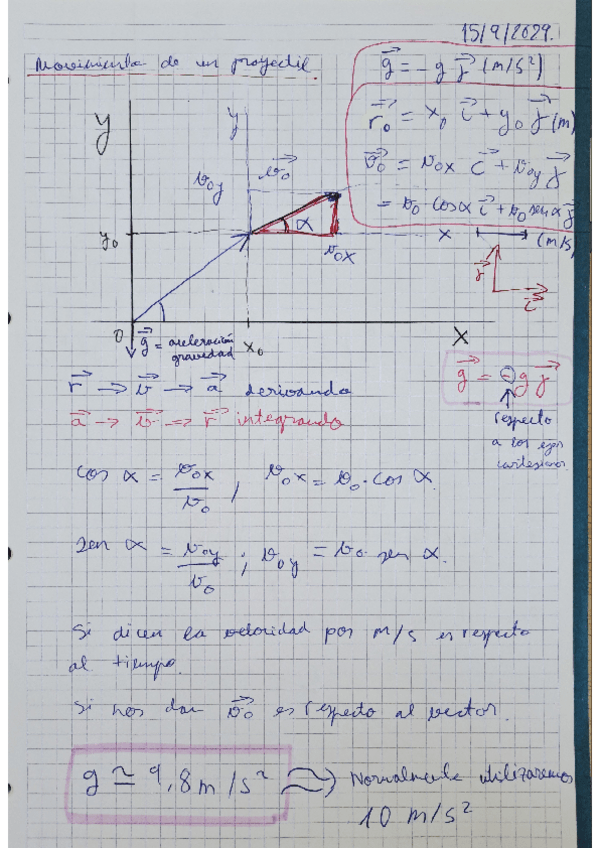 15/9/2029.
Movimiento de un proyectil.
g⃗ = -g j⃗ (m/s²)
r⃗₀ = x₀ i⃗ + y₀ j⃗ (m)
v⃗₀ = v₀x i⃗ + v₀y j⃗
= v₀ cosα i⃗ + v₀ senα j⃗
(m/s)
y
y
v₀y
v⃗₀
α
v₀x
y₀
x
j⃗
i⃗
0
g⃗ = aceleración
gravedad
x₀
X
r⃗ → v⃗ → a⃗ derivando
a⃗ → v⃗ → r⃗ integrando
g⃗ = - g j⃗
respecto
a los ejes
cartesianos.
cos α = v₀x / v₀ ; v₀x = v₀ · cos α.
sen α = v₀y / v₀ ; v₀y = v₀ sen α.
Si dicen la velocidad por m/s es respecto
al tiempo.
Si nos dan v⃗₀ es respecto al vector.
g ≃ 9,8 m/s² ⇒ Normalmente utilizaremos
10 m/s²